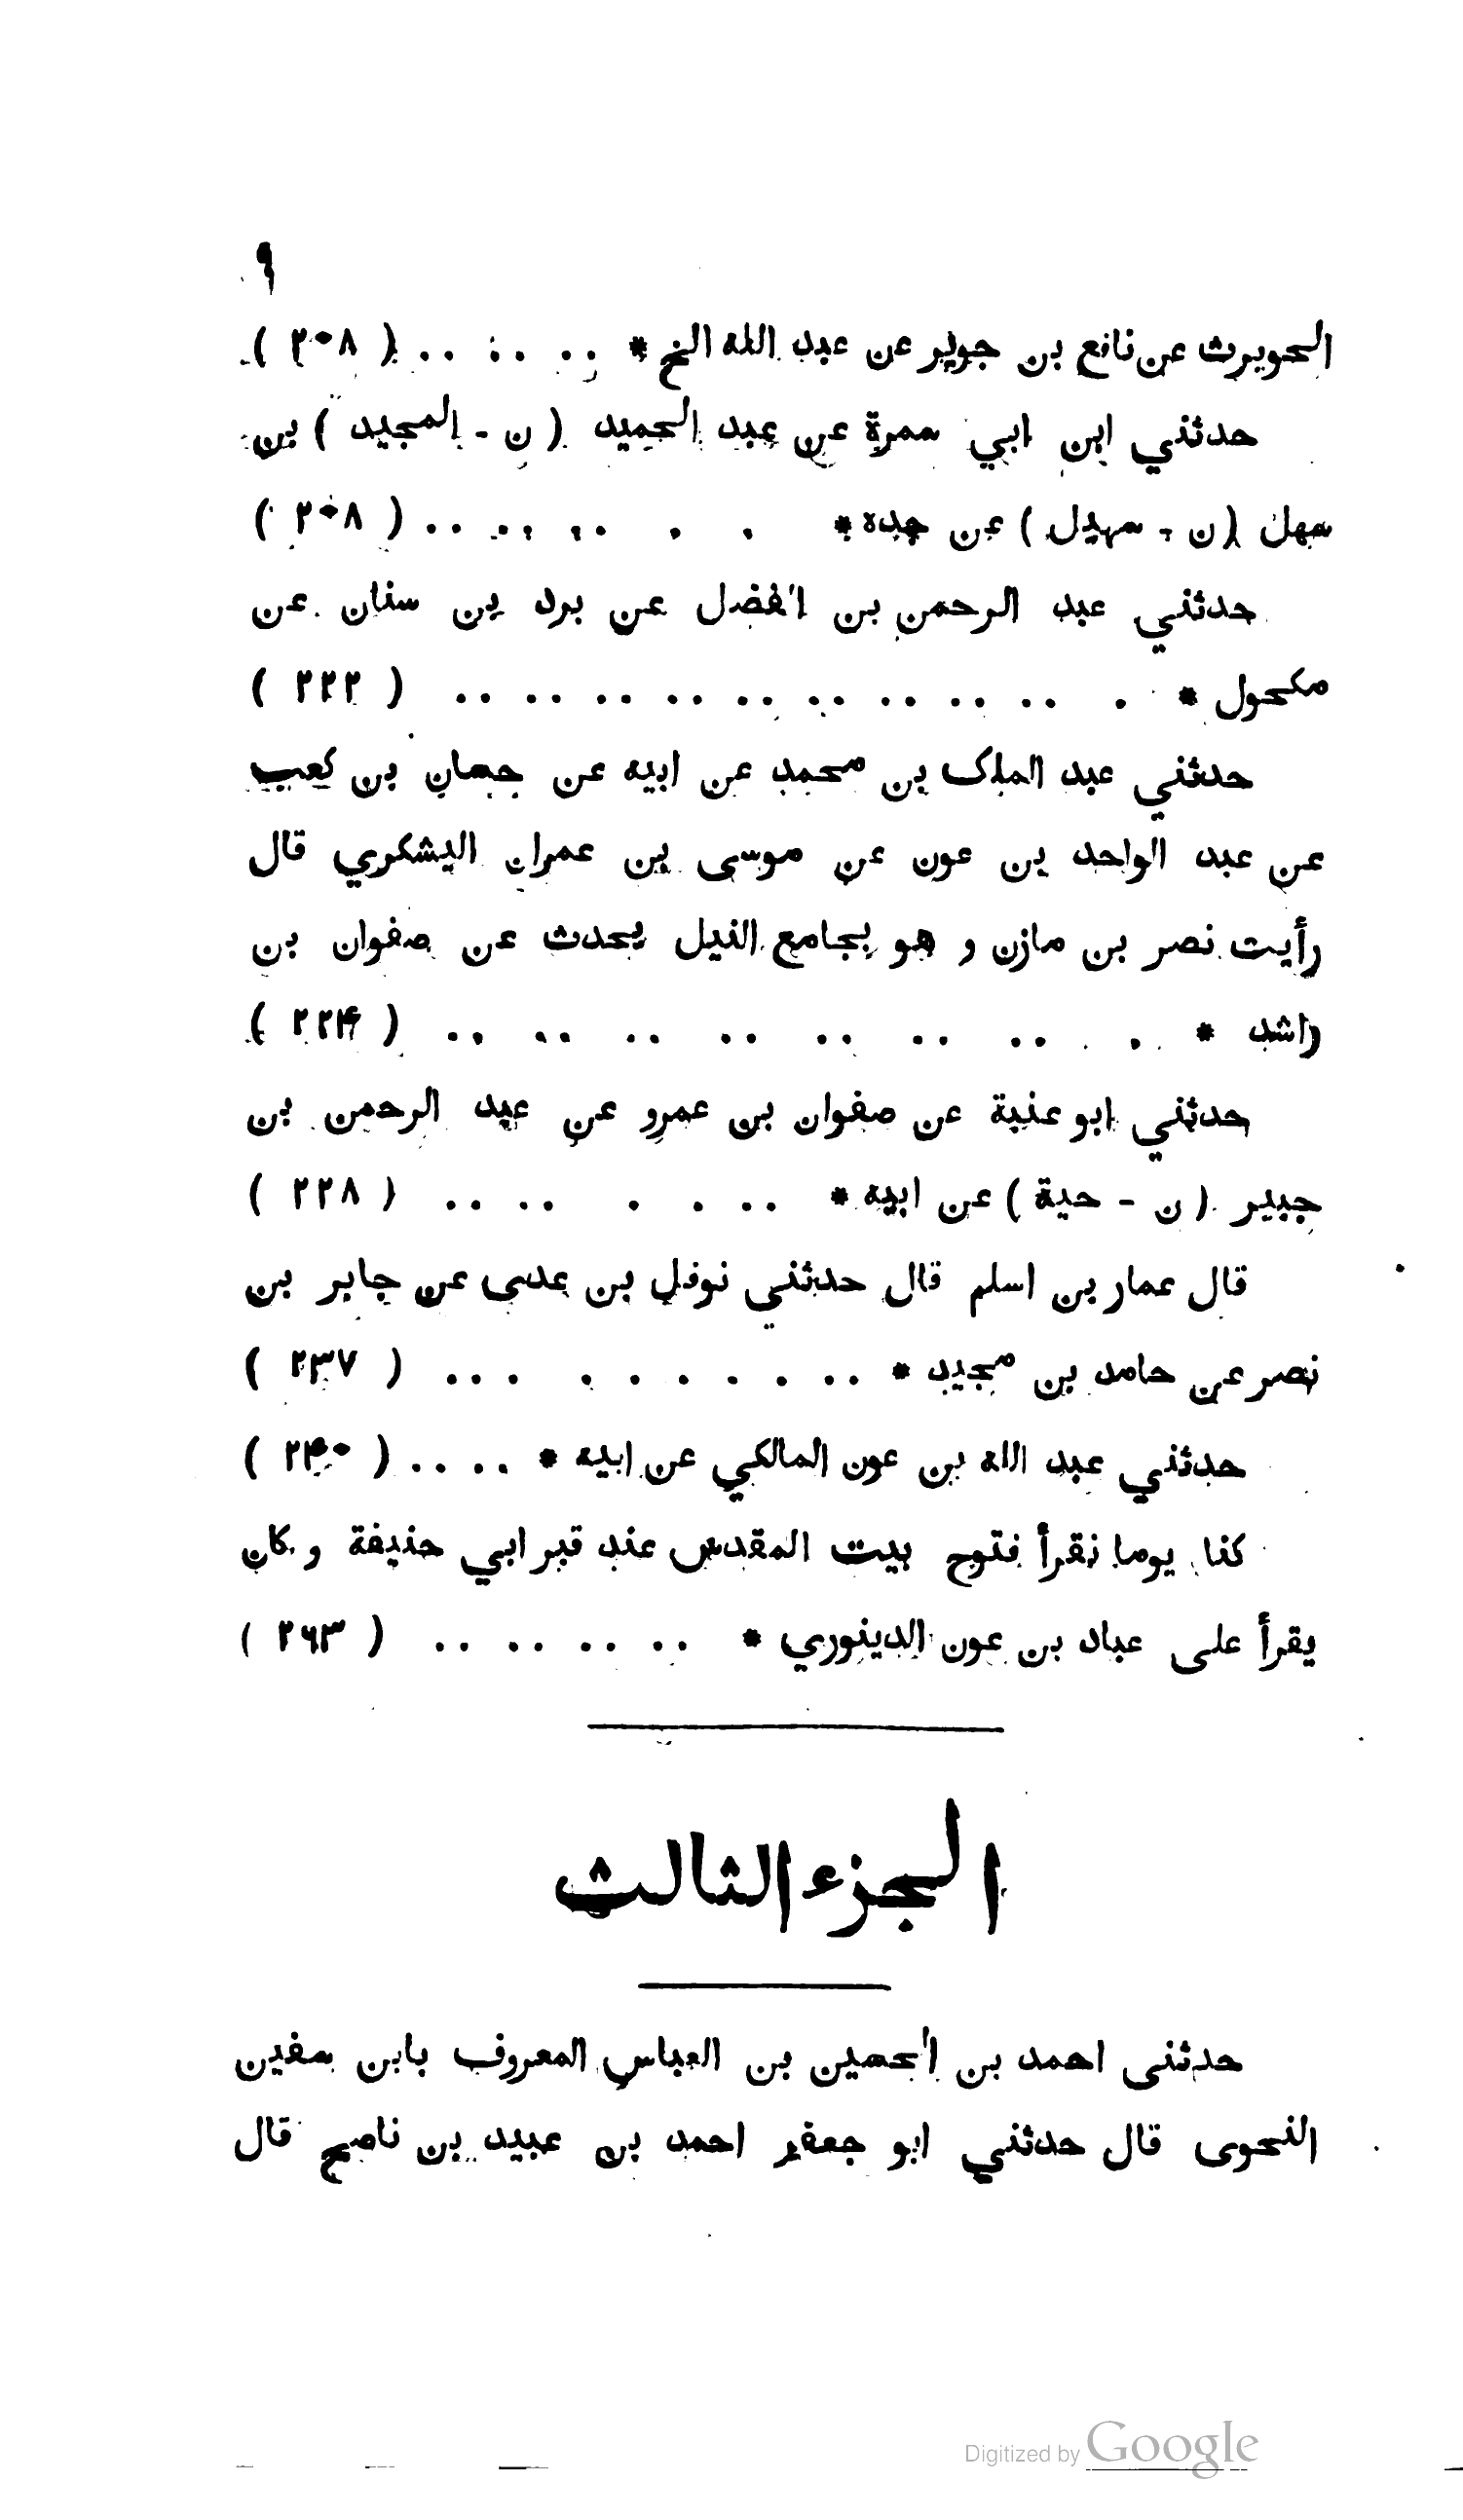 ٩
الحويرث عن نافع بن جوير عن عبد الله الخ * .. .. .. ( ٢٠٨ )
حدثني ابن ابي سمرة عن عبد الحميد ( ن - المجيد ) بن
سهل ( ن - سهيل ) عن جده * . . .. .. .. ( ٢٠٨ )
حدثني عبد الرحمن بن الفضل عن برد بن سنان عن
مكحول * . .. .. .. .. .. .. .. .. .. ( ٢٢٢ )
حدثني عبد الملك بن محمد عن ابيه عن حسان بن كعب
عن عبد الواحد بن عون عن موسى بن عمران اليشكري قال
رأيت نصر بن مازن و هو بجامع النيل يحدث عن صفوان بن
راشد * . .. .. .. .. .. .. .. ( ٢٢۴ )
حدثني ابو عنبة عن صفوان بن عمرو عن عبد الرحمن بن
جبير ( ن - حية ) عن ابيه * .. . . .. .. ( ٢٢٨ )
قال عمار بن اسلم قال حدثني نوفل بن عدى عن جابر بن
نصر عن حامد بن مجيد * .. . . . . . ... ( ٢٣٧ )
حدثني عبد الله بن عون المالكي عن ابيه * .. .. ( ٢۴٠ )
كنا يوما نقرأ فتوح بيت المقدس عند قبر ابي حنيفة و كان
يقرأ على عباد بن عون الدينوري * .. .. .. .. ( ٢٦٣ )
الجزء الثالث
حدثنى احمد بن الحسين بن العباس المعروف بابن سفين
النحوى قال حدثني ابو جعفر احمد بن عبيد بن ناصح قال
Digitized by Google